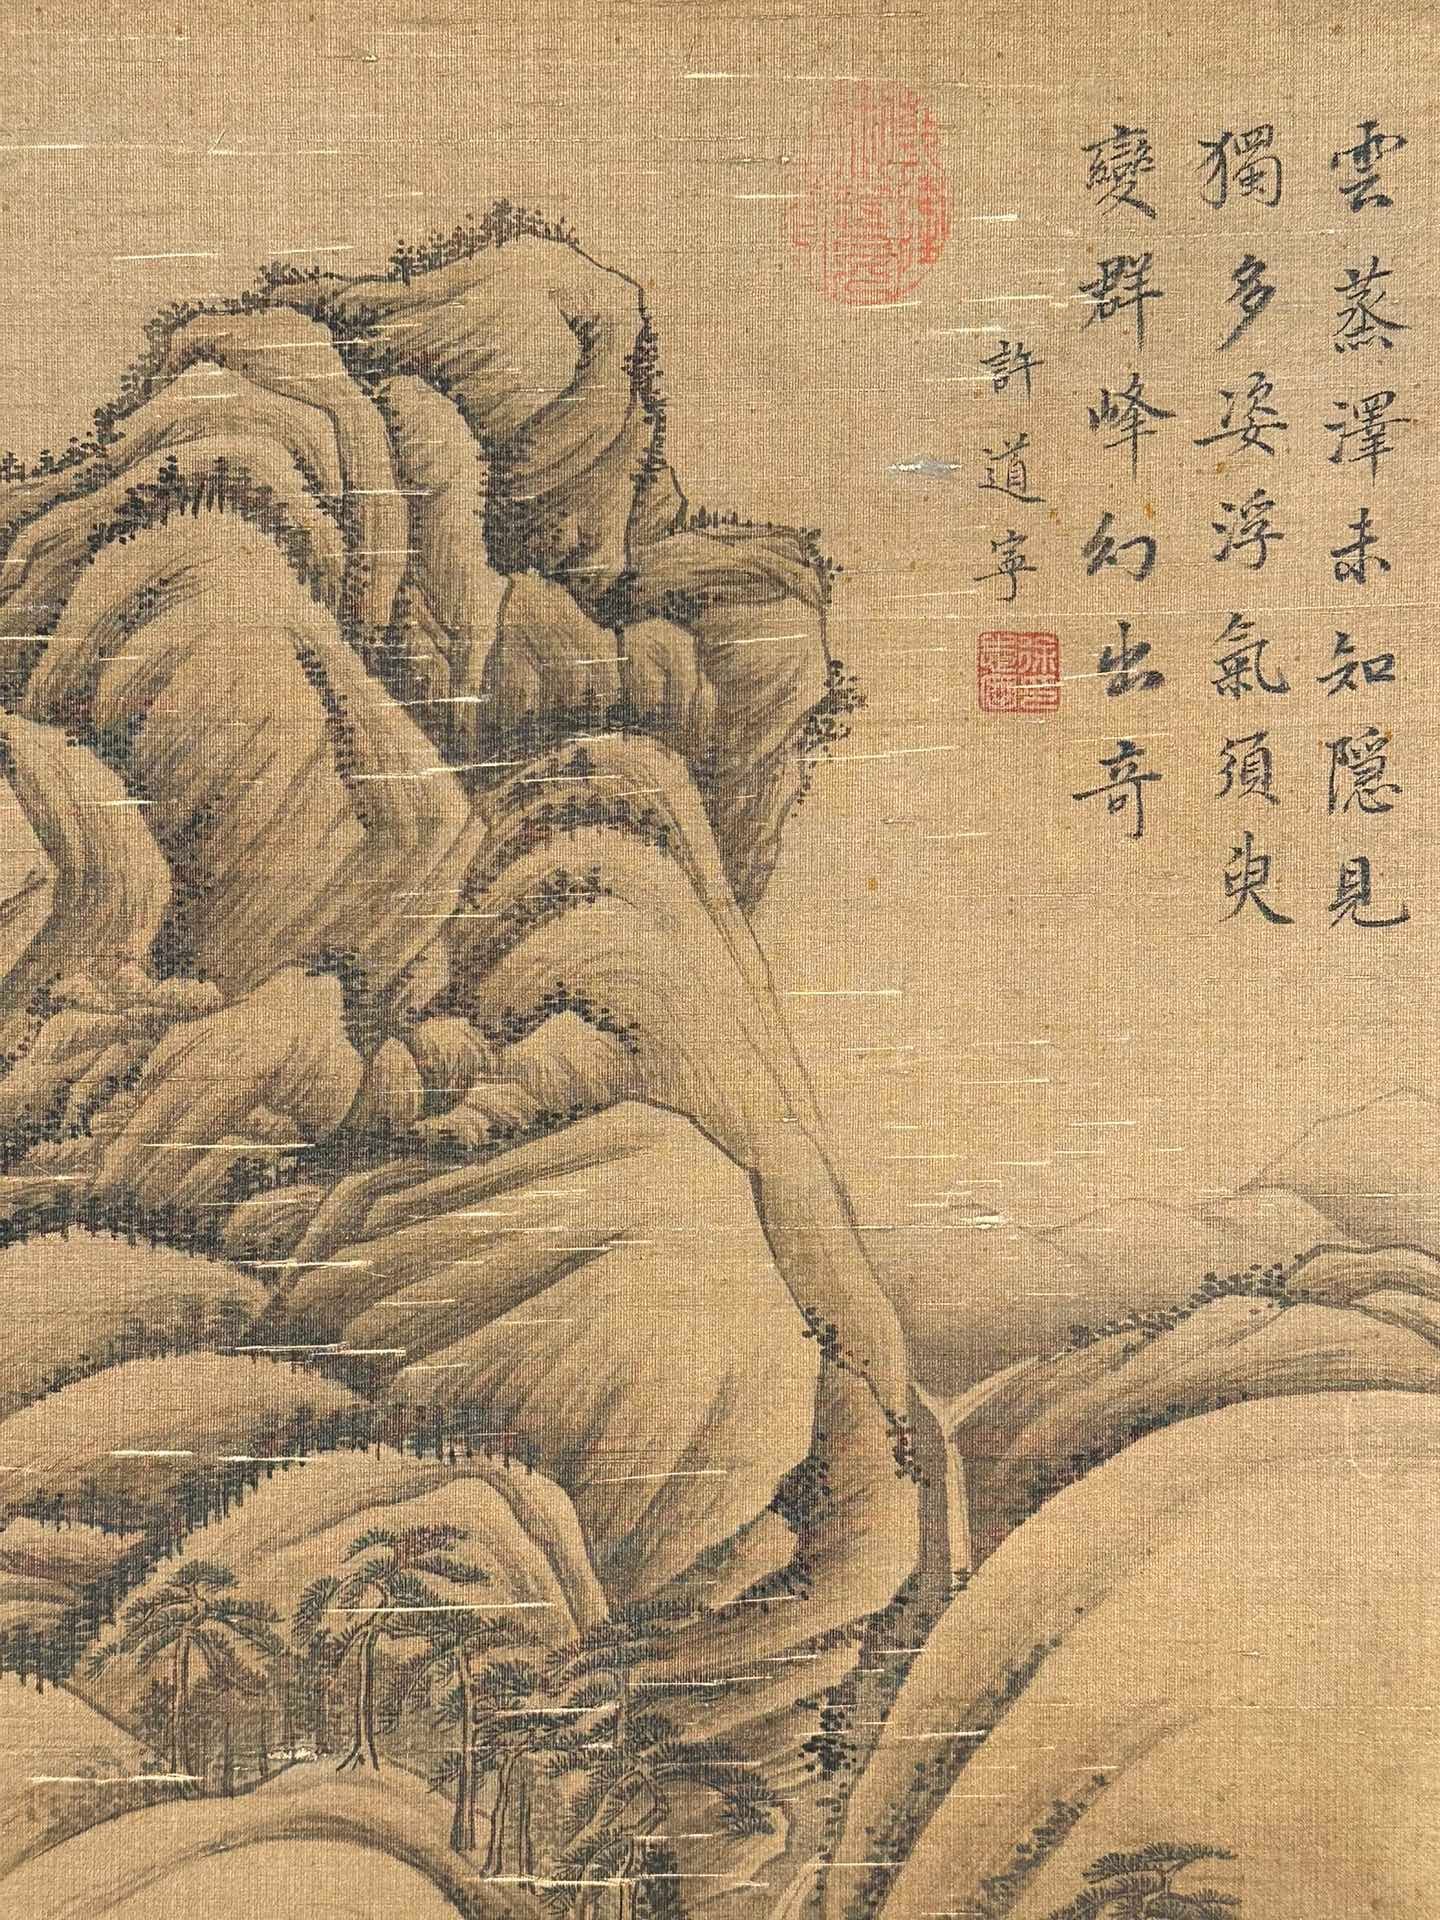 雲蒸澤未知隱見
獨多姿浮氣須臾
變群峰幻出奇
許道寧